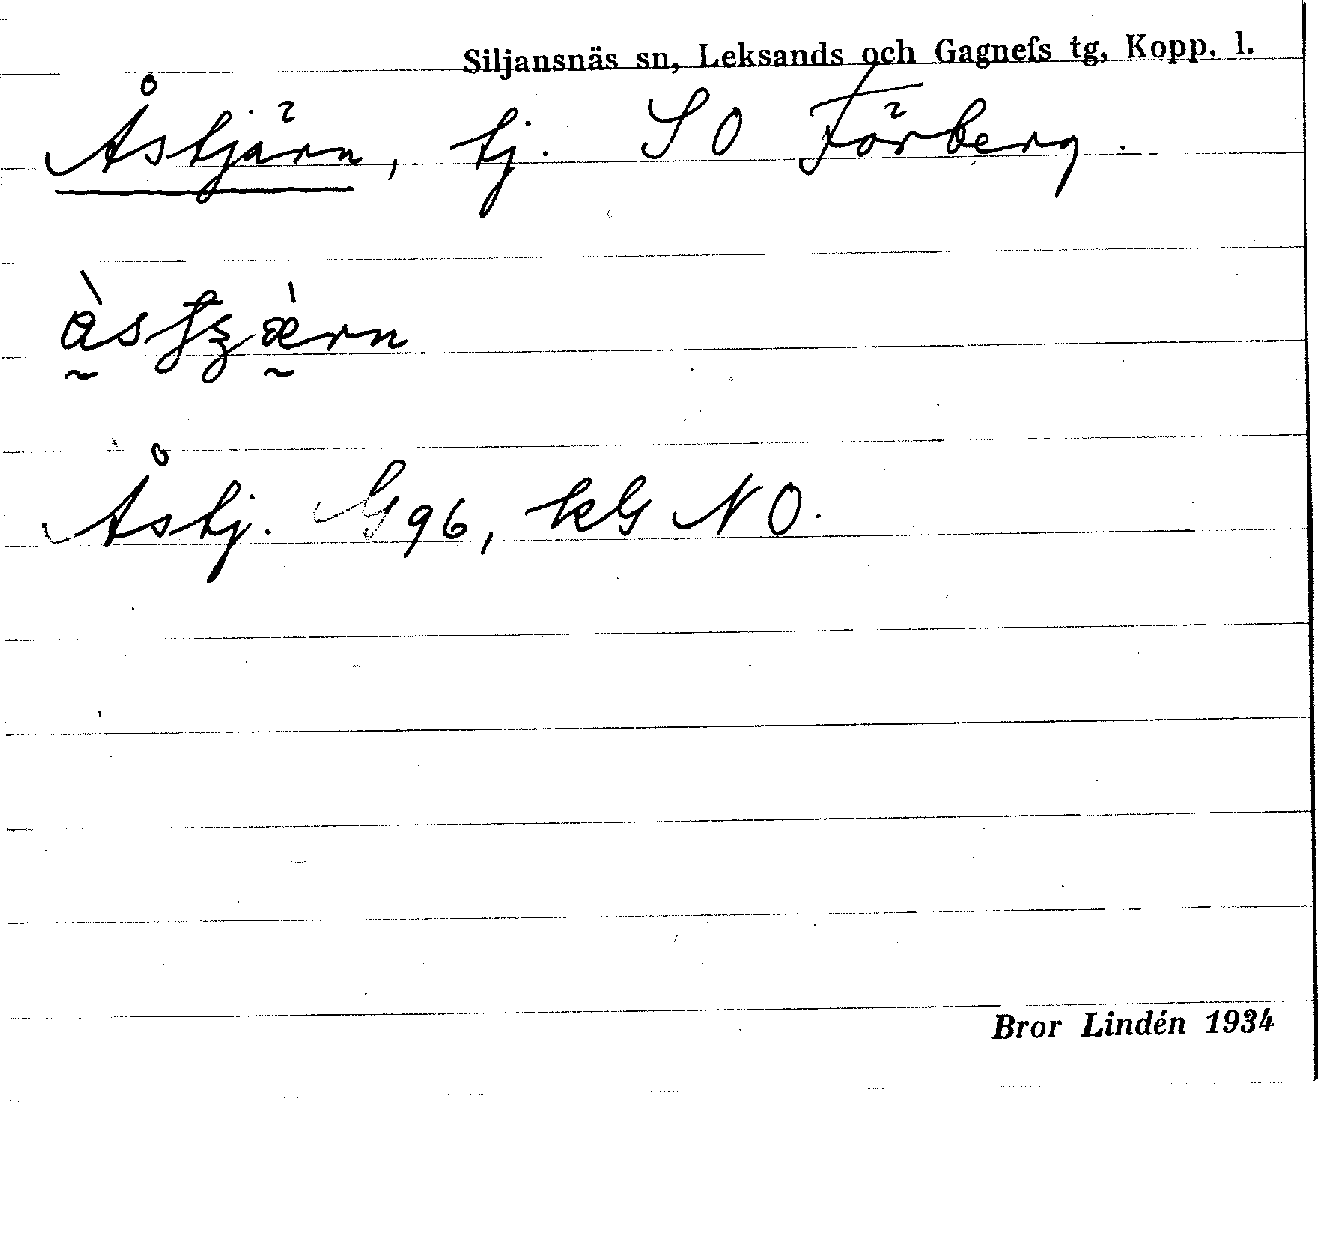 Siljansnäs sn, Leksands och Gagnefs tg, Kopp. l.
Åstjärn, tj. S O Förberg.
Åstj. G96, kG NO.
Bror Lindén 1934